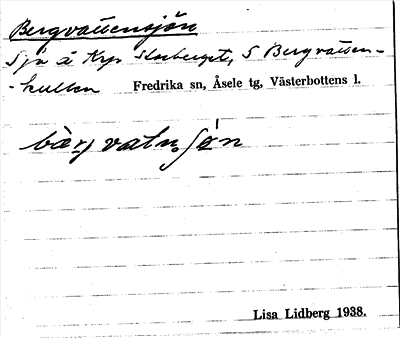 Bergvattensjön
Sjö å Krp Storberget, S Bergvatten-
-kullen Fredrika sn, Åsele tg, Västerbottens l.
bärjvatnsjön
Lisa Lidberg 1938.